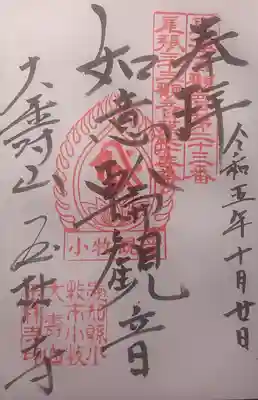 奉拝
令和五年十月廿日
如意輪観音
大壽山玉林寺
尾張三十三観音
小牧観音
愛知縣小
牧市小牧
大壽山
玉林寺